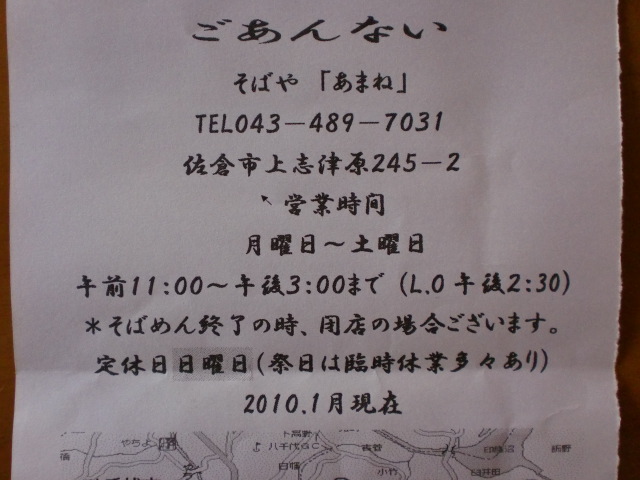 ごあんない
そばや 「あまね」
TEL043－489－7031
佐倉市上志津原245－2
営業時間
月曜日～土曜日
午前11:00～午後3:00まで (L.O 午後2:30)
＊そばめん終了の時、閉店の場合ございます。
定休日日曜日(祭日は臨時休業多々あり)
2010.1月現在
下高野
やちよ
八千代GC
吉菅
印旛沼
萩野
白幡
小竹
臼井田